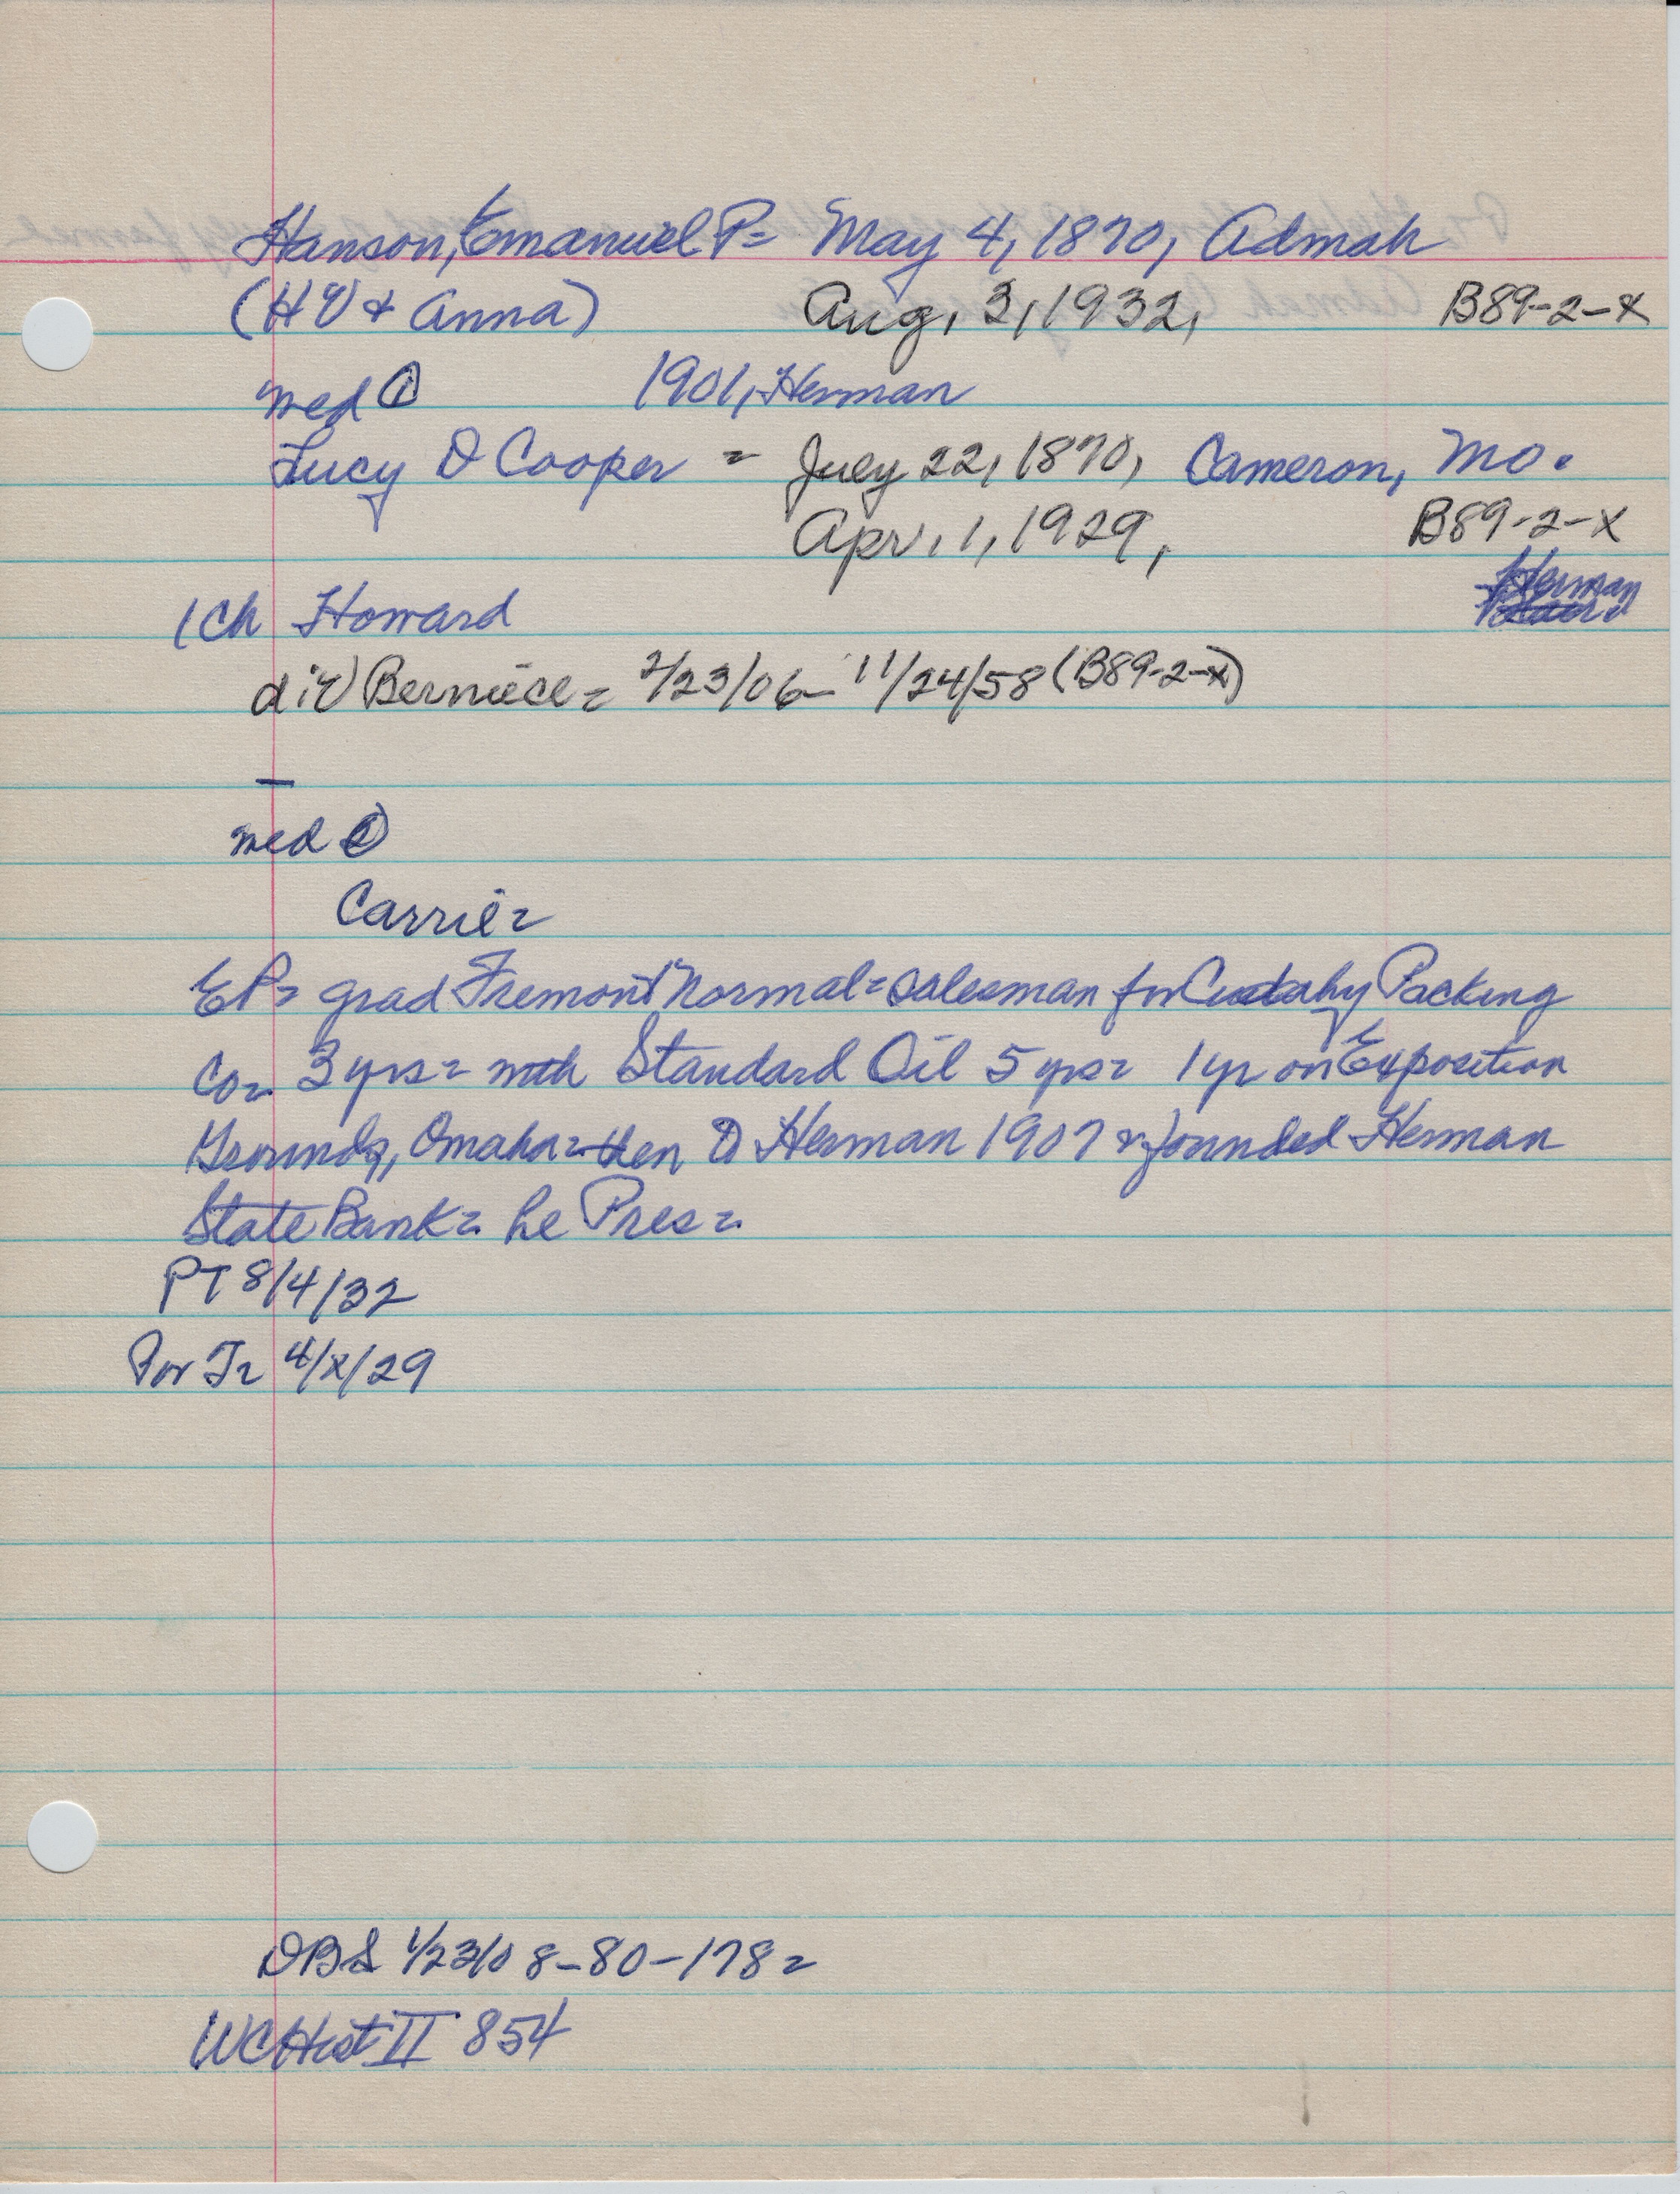 Hanson, Emanuel P= May 4, 1870, Admah
(HV & Anna) Aug, 3, 1932, B89-2-X
med ① 1901, Herman
Lucy D Cooper = July 22, 1870, Cameron, Mo.
Apr, 1, 1929, B89-2-X
Herman
1 Ch Howard
div Berniece= 2/23/06- 11/24/58 (B89-2-X)
—
med ②
Carrie=
EP= grad Fremont Normal= salesman for Cudahy Packing
Co= 3 yrs= with Standard Oil 5 yrs= 1 yr on Exposition
Grounds, Omaha= then to Herman 1907 & founded Herman
State Bank= he Pres=
PT 8/4/32
Por T= 4/X/29
DBS 1/23/08-80-178=
WCHist II 854